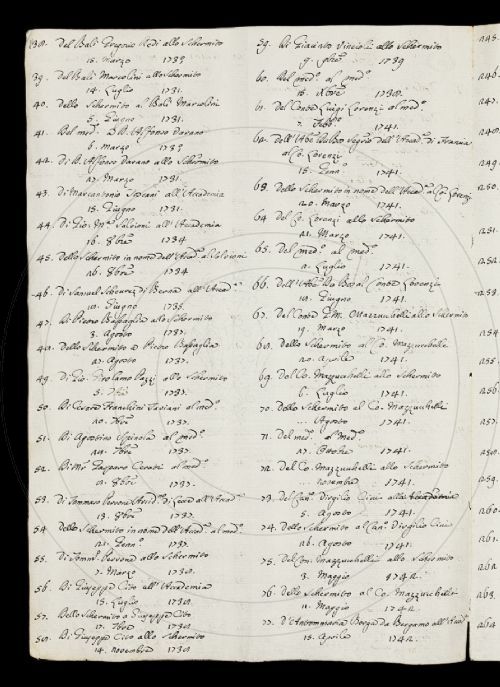 38. Del Bali Gregorio Redi allo Schermito
15. Marzo 1733
39. Del Bali Marcolini allo Schermito
14. Luglio 1731.
40. Dello Schermito al Bali Marcolini
5. Giugno 1731.
41. Del med.º D. B. Alfonso Varano
6. Marzo 1733
42. Di B. Alfonso Varano allo Schermito
27. Marzo 1731.
43. Di Marcantonio all'Accademia
15. Giugno 1731.
44. Di Gio. M.ª Salvioni all'Accademia
16. 8bre 1734
45. Dello Schermito in nome dell'Accad.ª al Salvioni
26. 8bre 1734
46. Di Samuel Scheurer di Berna all'Accad.ª
10. Giugno 1735.
47. Di Pietro Battaglia allo Schermito
3. Agosto 1737.
48. Dello Schermito a Pietro Battaglia
21. Agosto 1737.
49. Di Gio. Girolamo Pazzi allo Schermito
5. 1737.
50. Di Cesare Franchini Taviani al med.º
20. 7bre 1737.
51. Di Agostino Spinola al med.º
7bre 1737.
52. Di M.r Gaspare Cerati al med.º
8bre 1737.
53. Di Tommaso Perrone all'Accad.ª
13. 8bre 1737.
54. Dello Schermito in nome dell'Accad.ª al med.º
21. Genn.º 1737.
55. Di Tomm.º Perrone allo Schermito
7. Marzo 1738.
56. Di Giuseppe Cito all'Accademia
15. Luglio 1738.
57. Dello Schermito a Giuseppe Cito
7bre 1738
58. Di Giuseppe Cito allo Schermito
14. novembre 1738
59. Di Giacinto Vincioli allo Schermito
9. 1739
60. Del med.º al med.º
16. 1738.
61. Del Conte Luigi Lorenzi al med.º
7. 1741.
62. Dell'Ab.e Du Bos Segr.io dell'Accad.ª di Francia
al Co. Lorenzi
15. Genn.º 1741.
63. Dello Schermito in nome dell'Accad.ª al Co. Lorenzi
20. Marzo 1741.
64. Del Co. Lorenzi allo Schermito
21. Marzo 1741.
65. Del med.º al med.º
2. Luglio 1741.
66. Dell'Ab.e Du Bos al Conte Lorenzi
19. Giugno 1741.
67. Del Conte G. M. Mazzuchelli allo Schermito
19. Marzo 1741.
68. Dello Schermito al Co. Mazzuchelli
20. Aprile 1741.
69. Del Co. Mazzuchelli allo Schermito
6. Luglio 1741.
70. Dello Schermito al Co. Mazzuchelli
... Agosto 1741.
71. Del med.º al Med.º
17. Ottobre 1741.
72. Del Co. Mazzuchelli allo Schermito
... novembre 1741.
73. Del Can.º Virgilio Cini alla Accademia
5. Agosto 1741.
74. Dello Schermito al Can.º Virgilio Cini
26. Agosto 1741.
75. Del Con. Mazzuchelli allo Schermito
3. Maggio 1742.
76. Dello Schermito al Co. Mazzuchelli
11. Maggio 1742.
77. D'Antommaria Borga da Bergamo all'Accad.ª
15. Aprile 1742.